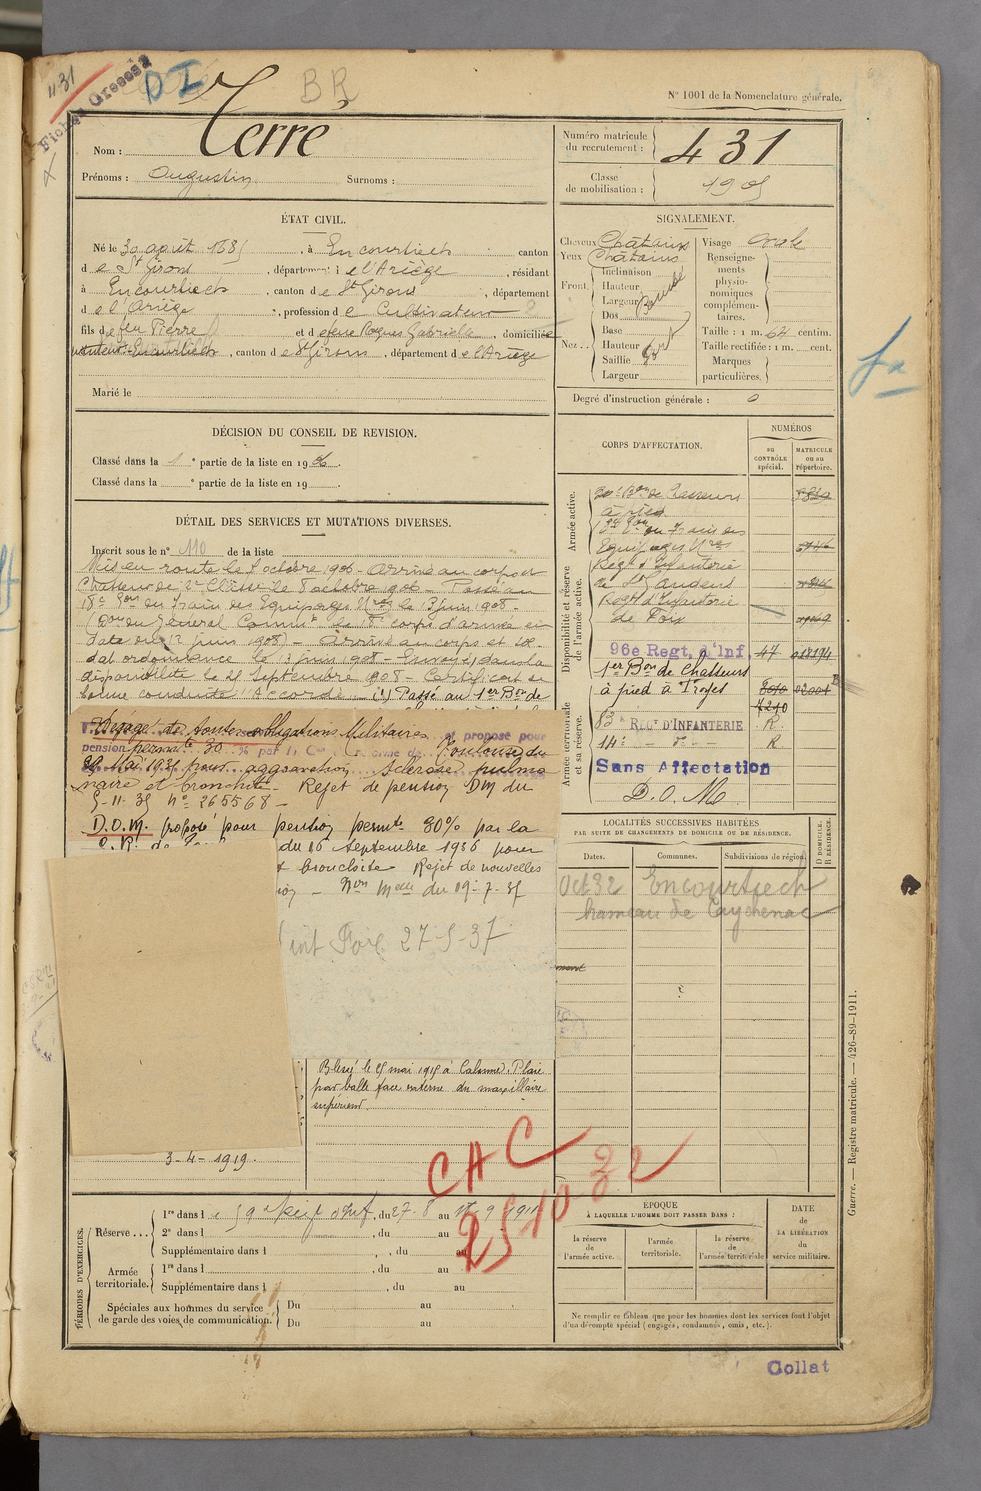 431
Fiches
DI
BR
N° 1001 de la Nomenclature générale.
Nom : Terré
Prénoms : Augustin Surnoms :
Numéro matricule du recrutement : 431
Classe de mobilisation : 1905
ÉTAT CIVIL.
Né le 30 août 1885, à Encourtiech canton
de St Girons, département de l'Ariège, résidant
à Encourtiech, canton de St Girons, département
de l'Ariège, profession de Cultivateur
fils de feu Pierre et de feue Rogues Gabrielle, domiciliée
Encourtiech, canton de St Girons, département de l'Ariège
Marié le
SIGNALEMENT.
Cheveux Châtains
Yeux Châtains
Front. Inclinaison
Hauteur
Largeur
Nez.. Dos
Base
Hauteur
Saillie
Largeur
Visage ovale
Renseignements physionomiques complémentaires.
Taille : 1 m. 64 centim.
Taille rectifiée : 1 m. cent.
Marques particulières.
Degré d'instruction générale : 0
DÉCISION DU CONSEIL DE REVISION.
Classé dans la 1e partie de la liste en 1906.
Classé dans la e partie de la liste en 19
DÉTAIL DES SERVICES ET MUTATIONS DIVERSES.
Inscrit sous le n° 110 de la liste
Mis en route le 8 octobre 1906 - Arrivé au corps et
Chasseur de 2e Classe le 8 octobre 1906 - Passé au
18e Eon du Train des Equipages Mres le 13 juin 1908 -
(Don du Général Commt le corps d'armée en
date du 12 juin 1908) - Arrivé au corps et sol-
dat ordonnance le 13 juin 1908 - Envoyé dans la
disponibilité le 25 Septembre 1908 - Certificat de
bonne conduite "Accordé" - (1) Passé au 1er Bon de
Dégagé de toutes obligations Militaires et proposé pour
pension permante 30 % par la Con de réforme de Toulouse du
Mai 1931 pour aggravation Sclérose pulmo
naire et bronchite - Rejet de pension DM du
5-11-35 N° 265568 -
D.O.M. proposé pour pension permte 30% par la
du 16 Septembre 1936 pour
bronchite - Rejet de nouvelles
du 19-7-37
27-5-37
Blessé le 25 mai 1915 à Calonne. Plaie
par balle face externe du maxillaire
supérieur.
3-4-1919.
CAC
25 10 32
CORPS D'AFFECTATION.
NUMÉROS
au CONTRÔLE spécial.
MATRICULE ou au répertoire.
Armée active.
Bon de Chasseurs
à pied
18e Eon du Train des
Equipages Mres
Disponibilité et réserve de l'armée active.
Regt d'Infanterie
de St Gaudens
Regt d'Infanterie
de Foix
96e Regt. d'Inf. 47
1er Bon de Chasseurs
à pied à Troyes
7210
Armée territoriale et sa réserve.
83e REGt D'INFANTERIE R
14e R
Sans Affectation
D.O.M.
LOCALITÉS SUCCESSIVES HABITÉES
PAR SUITE DE CHANGEMENTS DE DOMICILE OU DE RÉSIDENCE.
Dates. Communes. Subdivisions de région. D DOMICILE. R RÉSIDENCE.
Oct 32 Encourtiech
hameau de Caychenac
PÉRIODES D'EXERCICES.
Réserve... 1re dans le 59e Regt d'Inf, du 27-8 au 9 1911
2e dans l , du au
Supplémentaire dans l , du au
Armée territoriale. 1re dans l , du au
Supplémentaire dans l , du au
Spéciales aux hommes du service de garde des voies de communication. Du au
Du au
ÉPOQUE
À LAQUELLE L'HOMME DOIT PASSER DANS :
la réserve de l'armée active.
l'armée territoriale.
la réserve de l'armée territoriale
DATE
de
LA LIBÉRATION
du
service militaire.
Ne remplir ce tableau que pour les hommes dont les services font l'objet
d'un décompte spécial (engagés, condamnés, omis, etc.).
Guerre. — Registre matricule. — 426-89-1911.
Collat